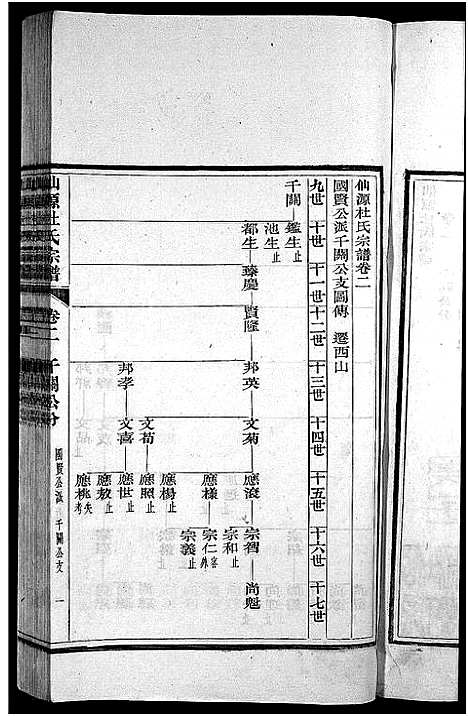 仙源杜氏宗譜卷二
國賢公派千關公支圖傳　遷西山
九世　十世　十一世　十二世　十三世　十四世　十五世　十六世　十七世
千關　鑑生止
池生止
都生　臻慶　賢隆　邦英　文菊　應滾　宗智　尚魁
宗和止
應樣　宗仁
宗義止
應楊止
文荀　應照止
邦孝　文喜　應世止
應敖止
應桃失考
仙源杜氏宗譜　卷二　千關公分
國賢公派　千關公支　一